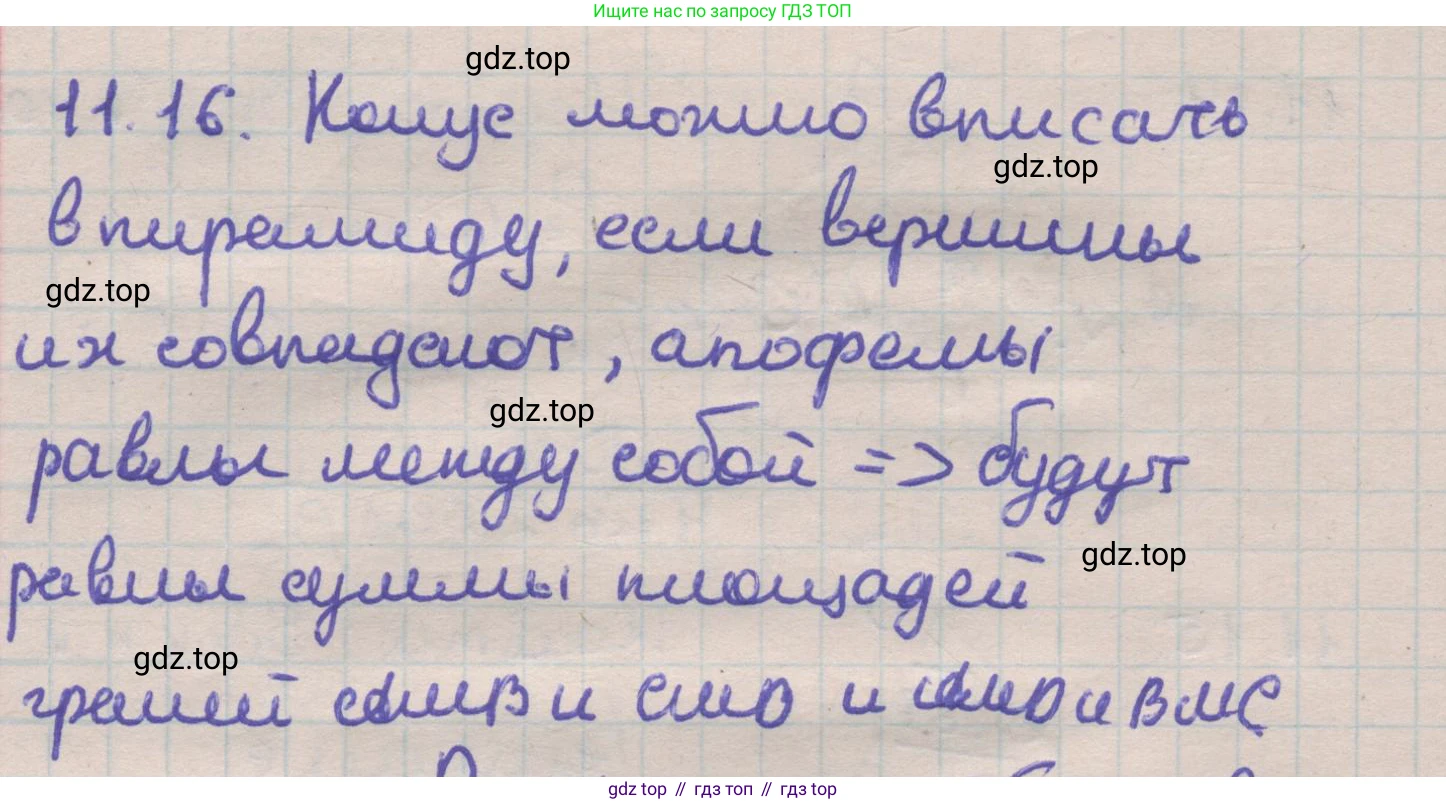 Ищите нас по запросу ГДЗ ТОП
gdz.top
11.16. Конус можно вписать
gdz.top
в пирамиду, если вершины
gdz.top
их совпадают, апофемы
gdz.top
равны между собой => будут
gdz.top
равны суммы площадей
gdz.top
граней АМВ и СМD и АМD и ВМС
gdz top // гдз топ // gdz top